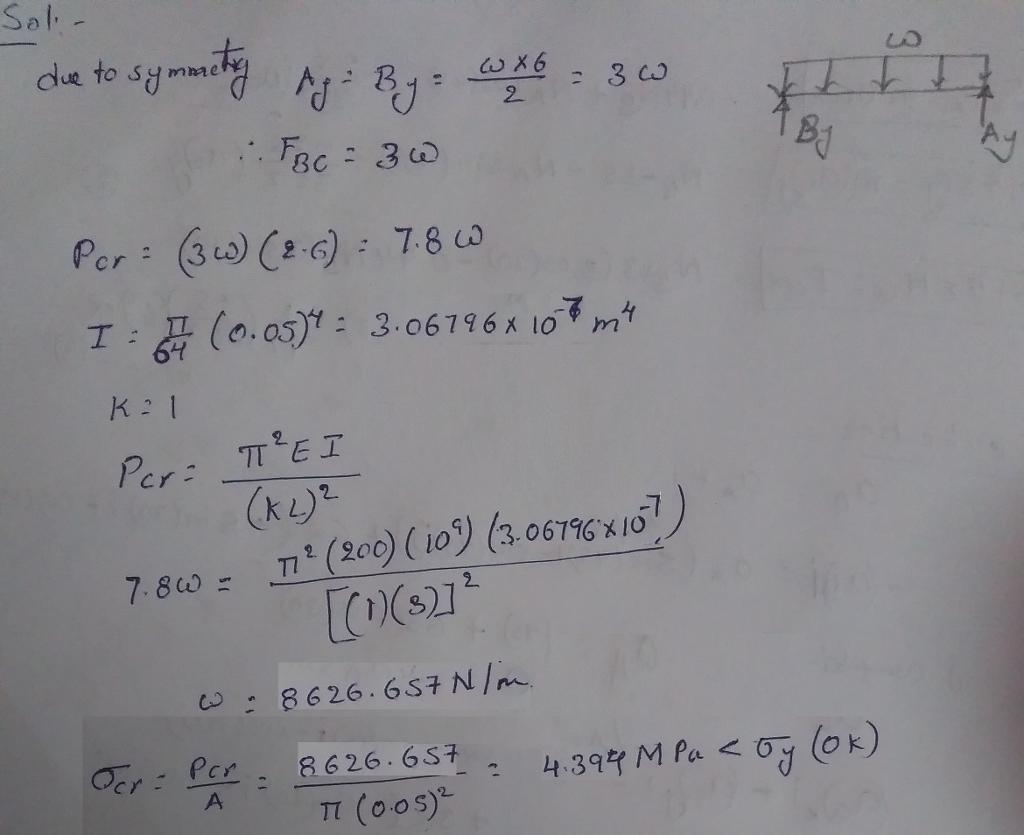 Sol:-
due to symmetry Ay = By = ω×6 / 2 = 3ω
ω
By Ay
∴ FBC = 3ω
Pcr = (3ω)(2.6) = 7.8ω
I = π/64 (0.05)^4 = 3.06796 x 10^-7 m^4
K = 1
Pcr = π²EI / (KL)²
7.8ω = π²(200)(10^9)(3.06796×10^-7) / [(1)(3)]²
ω = 8626.657 N/m.
σcr = Pcr / A = 8626.657 / π(0.05)² = 4.394 MPa < σy (OK)